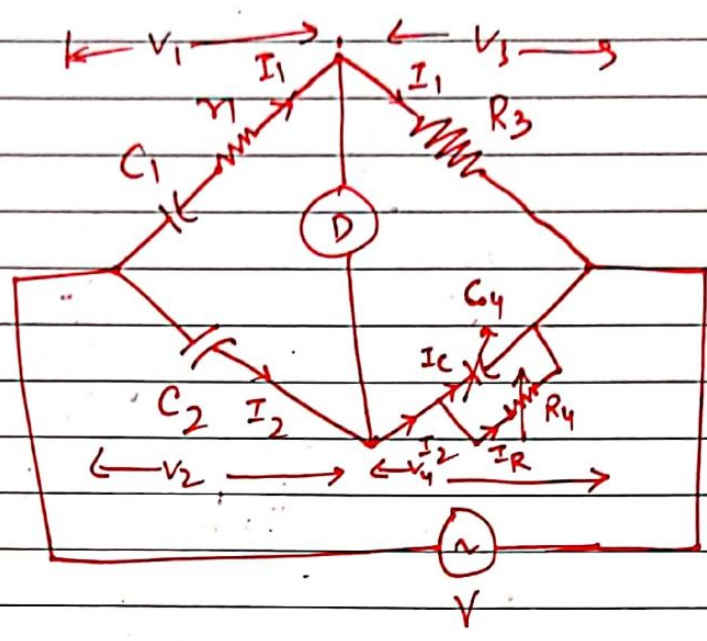 V₁ V₃
I₁ I₁
r₁ R₃
C₁
D
C₄
I_C
C₂ I₂ I₂ I_R R₄
V₂ V₄
~
V